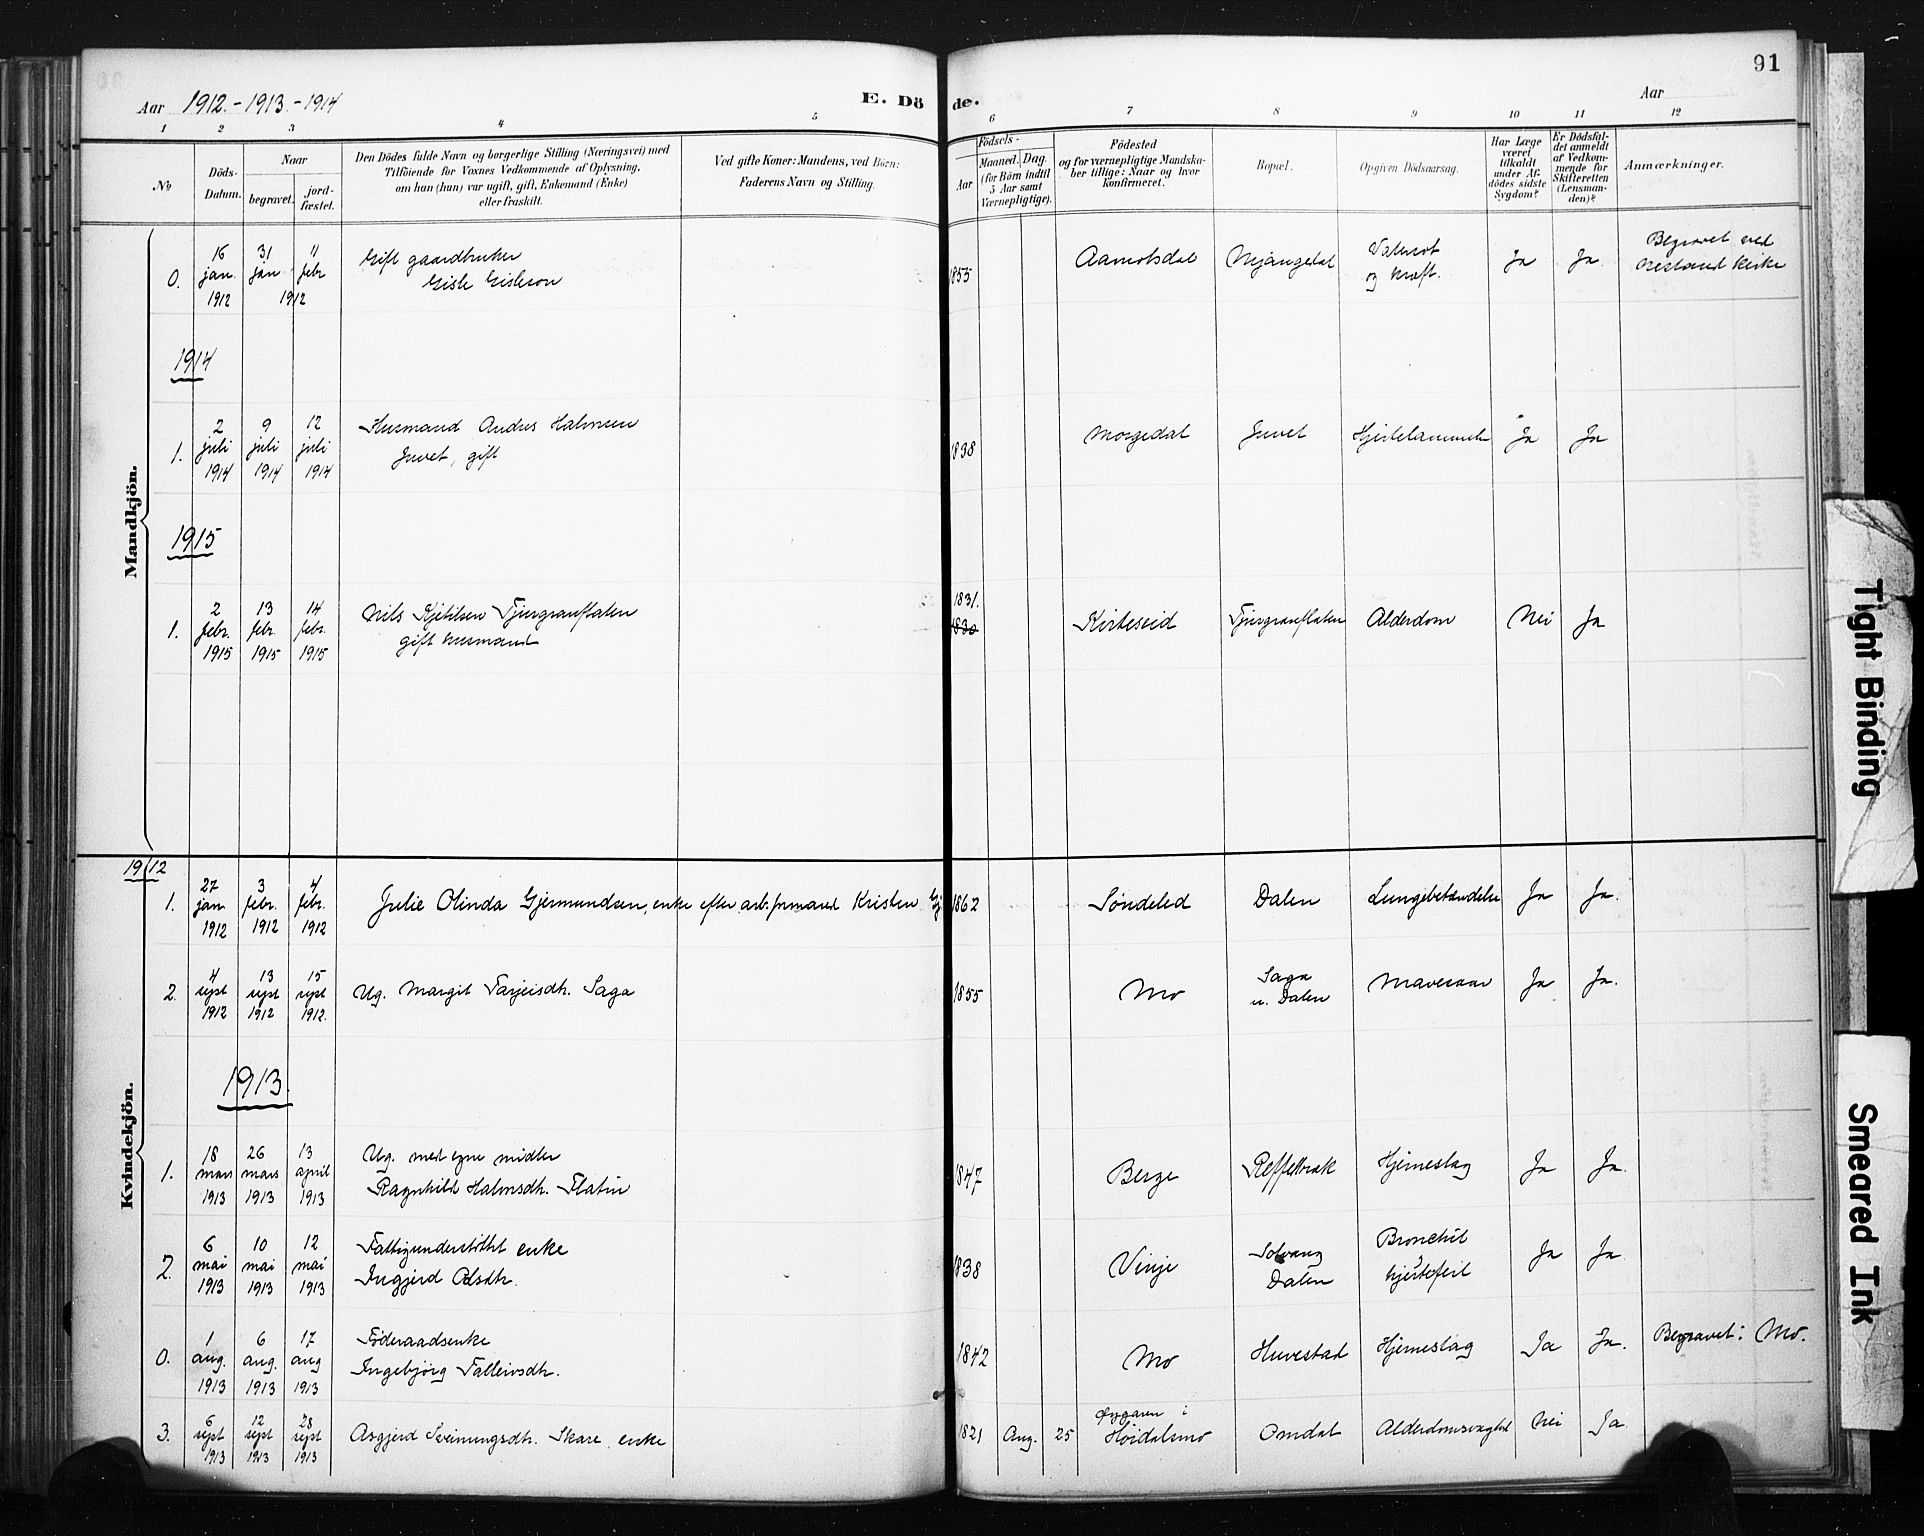 Aar 1912. - 1913. - 1914
E. Dö
de.
Aar
91
1 2 3 4 5 6 7 8 9 10 11 12
No
Döds-
Datum.
Naar
begravet.
jord-
fæstet.
Den Dödes fulde Navn og borgerlige Stilling (Næringsvei) med
Tilföiende for Voxnes Vedkommende af Oplysning,
om han (hun) var ugift, gift, Enkemand (Enke)
eller fraskilt.
Ved gifte Koner: Mandens, ved Börn:
Faderens Navn og Stilling.
Födsels-
Aar
Maaned. Dag.
(for Börn indtil
5 Aar samt
Værnepligtige).
Födested
og for værnepligtige Mandska-
ber tillige: Naar og hvor
konfirmeret.
Bopæl.
Opgiven Dödsaarsag.
Har Læge
været
tilkaldt
under Af-
dödes sidste
Sygdom?
Er Dödsfal-
det anmeldt
af Vedkom-
mende for
Skifteretten
(Lensman-
den)?
Anmærkninger.
Mandkjön.
0.
16
jan.
1912
31
jan
11
febr
1912
Gift gaardbruker
Gisle Gisleson
1853
Aamotsdal
og kræft.
Ja
Ja.
Begravet ved
Nesland kirke
1914
1.
2
juli
1914
9
juli
1914
12
juli
1914
Husmand Andres Halvorsen
Juvet, gift
1838
Morgedal
Juvet
Hjertelammelse
Ja
Ja
1915
1.
2
febr.
1915
13
febr.
1915
14
febr.
1915
Nils Kjetilsen Tjurgranflaten
gift husmand
1831.
1830
Kviteseid
Tjurgranflaten
Alderdom
Nei
Ja
Kvindekjön.
1912
1.
27
jan.
1912
3
febr.
1912
4
febr.
1912
Julie Olinda Gjermundsen, enke efter arb.formand Kristen Gj.
1862
Søndeled
Dalen
Lungebetændelse
Ja
Ja.
2.
4
sept
1912
13
sept
1912
15
sept
1912.
Ug. Margit Tarjeisdtr. Saga
1855
Mo
Saga
n. Dalen
Mavesaar
Ja
Ja.
1913.
1.
18
mars
1913
26
mars
1913
13
april
1913
Ug. med egne midler
Ragnhild Halvorsdtr. Flatin
1847
Berge
Hjerneslag
Ja
Ja.
2.
6
mai
1913
10
mai
1913
12
mai
1913
Fattigunderstöttet enke
Ingjerd Olsdtr.
1838
Vinje
Solvang
Dalen
Bronchit
hjertefeil
Ja
Ja
0.
1
aug.
1913
6
aug.
1913
17
aug
1913
Föderaadsenke
Ingebjörg Talleivsdtr.
1842
Mo
Huvestad
Hjerneslag
Ja
Ja.
Begravet i Mo.
3.
6
sept
1913
12
sept
1913
28
sept
1913
Asgjerd Sveinungsdtr. Skare, enke
1821
Aug.
25
Øygaren i
Høidalsmo
Omdal
Alderdomsvaghed
Nei
Ja
Tight Binding
Smeared Ink